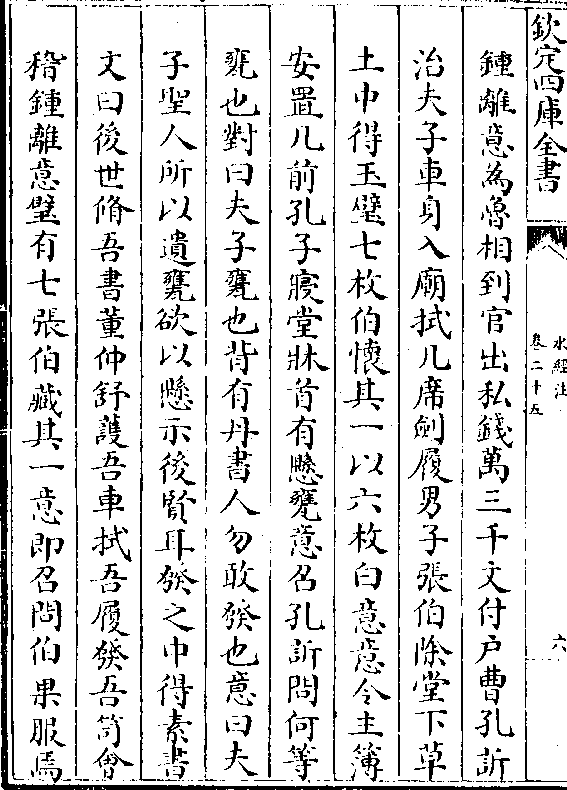 欽定四庫全書
水經注
卷二十五
六
鍾離意為魯相到官出私錢萬三千文付户曹孔訢
治夫子車身入廟拭几席劍履男子張伯除堂下草
土中得玉璧七枚伯懷其一以六枚白意意令主簿
安置几前孔子寢堂牀首有懸甕意召孔訢問何等
甕也對曰夫子甕也背有丹書人勿敢發也意曰夫
子聖人所以遺甕欲以懸示後賢耳發之中得素書
文曰後世脩吾書董仲舒護吾車拭吾履發吾笥會
稽鍾離意璧有七張伯藏其一意即召問伯果服焉